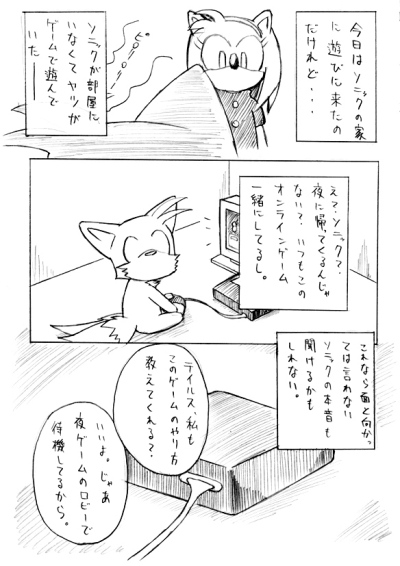 今日はソニックの家
に遊びに来たの
だけれど・・・
ピローリー
ソニックが部屋に
いなくてヤツが
ゲームで遊んで
いた――
え?ソニック?
夜に帰ってくるんじゃ
ない?いつもこの
オンラインゲーム
一緒にしてるし。
これなら面と向かっ
ては言わない
ソニックの本音も
聞けるかも
しれない。
テイルス、私も
このゲームのやり方
教えてくれる?
いいよ。じゃあ
夜ゲームのロビーで
待機してるから。